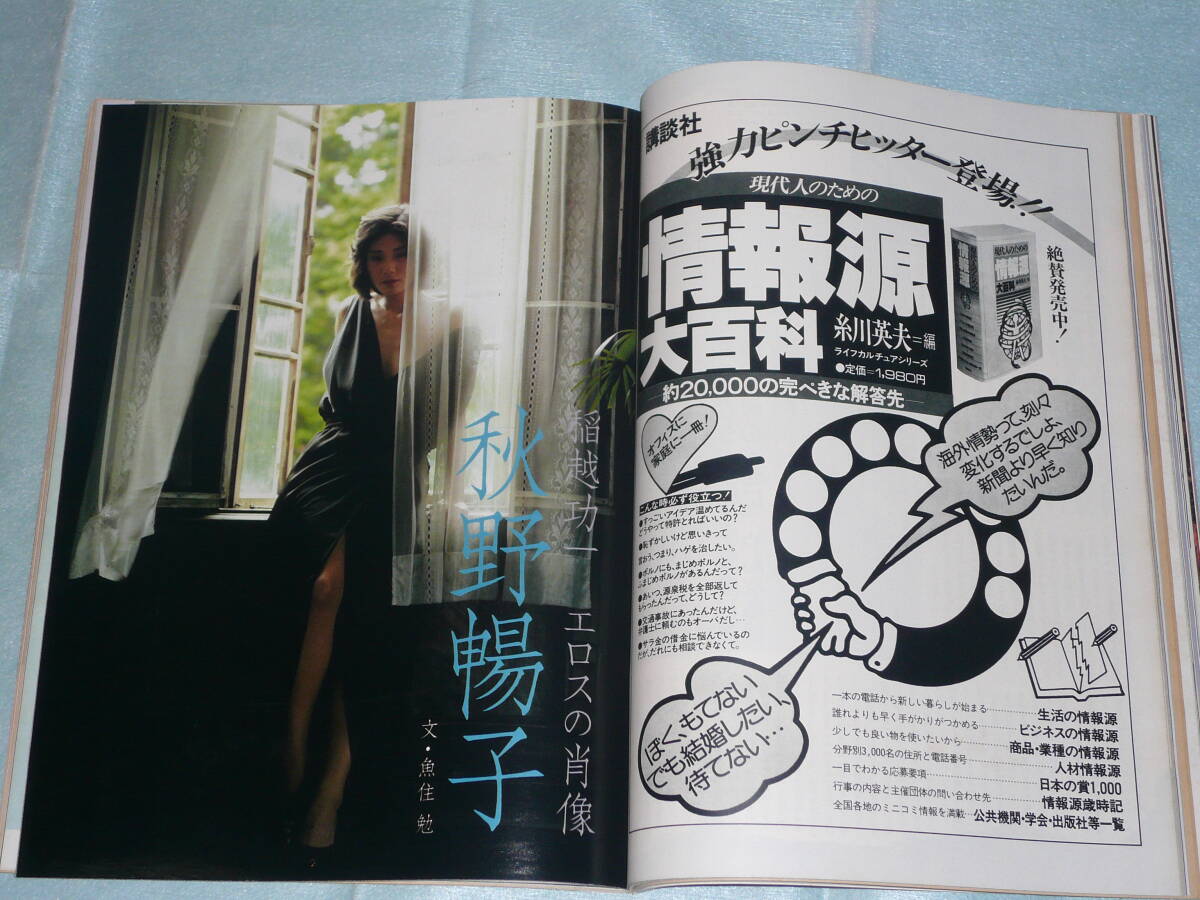 稲越功一 エロスの肖像
秋野暢子
文・魚住 勉
講談社
強力ピンチヒッター登場!!
現代人のための
情報源
大百科
糸川英夫=編
ライフカルチュアシリーズ
●定価=1,980円
約20,000の完ぺきな解答先
現代人のための
情報源
大百科
絶賛発売中!
オフィスに
家庭に一冊!
海外情勢って、刻々
変化するでしょ、
新聞より早く知り
たいんだ。
こんな時必ず役立つ!
●すっごいアイデア温めてるんだ
どうやって特許とればいいの?
●恥ずかしいけど思いきって
言おう、つまり、ハゲを治したい。
●ポルノにも、まじめポルノと、
ふまじめポルノがあるんだって?
●あいつ、源泉税を全部返して
もらったんだって、どうして?
●交通事故にあったんだけど、
弁護士に頼むのもオーバだし…
●サラ金の借金に悩んでいるの
だが、だれにも相談できなくて。
ぼく、もてない
でも結婚したい、
待てない…
一本の電話から新しい暮らしが始まる…生活の情報源
誰れよりも早く手がかりがつかめる…ビジネスの情報源
少しでも良い物を使いたいから…商品・業種の情報源
分野別3,000名の住所と電話番号…人材情報源
一目でわかる応募要項…日本の賞1,000
行事の内容と主催団体の問い合わせ先…情報源歳時記
全国各地のミニコミ情報を満載…公共機関・学会・出版社等一覧